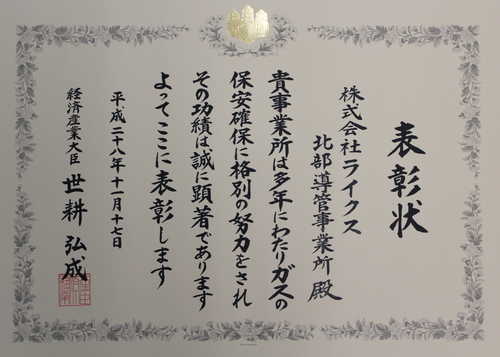 表彰状
株式会社ライクス
北部導管事業所 殿
貴事業所は多年にわたりガスの
保安確保に格別の努力をされ
その功績は誠に顕著であります
よってここに表彰します
平成二十八年十一月十七日
経済産業大臣 世耕 弘成